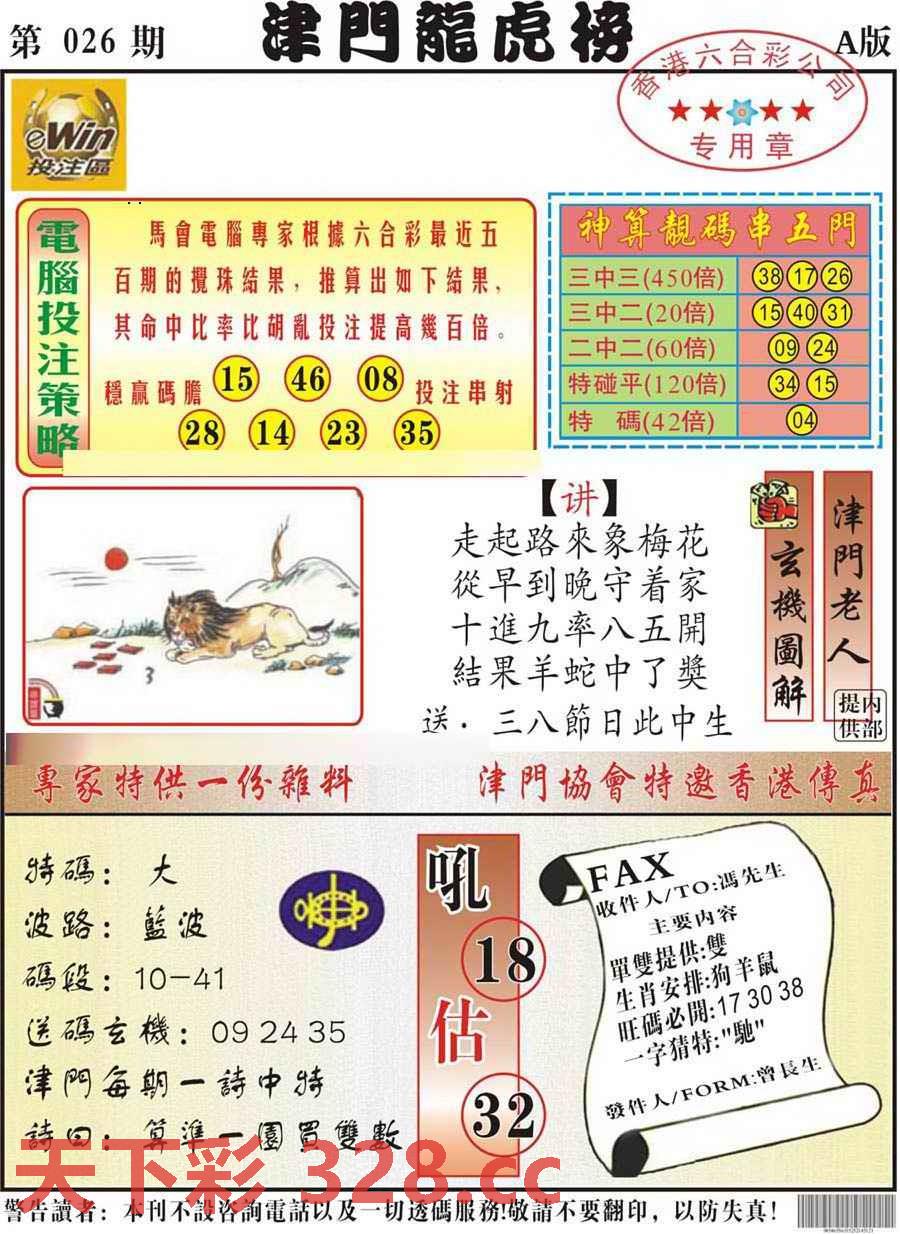 第 026 期
津門龍虎榜
A版
香港六合彩公司
专用章
eWin
投注區
電腦投注策略
馬會電腦專家根據六合彩最近五
百期的攪珠結果，推算出如下結果，
其命中比率比胡亂投注提高幾百倍。
穩贏碼膽 15 46 08 投注串射
28 14 23 35
神算靚碼串五門
三中三(450倍) 38 17 26
三中二(20倍) 15 40 31
二中二(60倍) 09 24
特碰平(120倍) 34 15
特 碼(42倍) 04
【讲】
走起路來象梅花
從早到晚守着家
十進九率八五開
結果羊蛇中了獎
送．三八節日此中生
玄機圖解
津門老人
内部提供
專家特供一份雜料
津門協會特邀香港傳真
特碼： 大
波路： 藍波
碼段：10-41
送碼玄機：09 24 35
津門每期一詩中特
詩曰：算準一園買雙數
吼
18
估
32
FAX
收件人/TO:馮先生
主要内容
單雙提供:雙
生肖安排:狗羊鼠
旺碼必開:17 30 38
一字猜特:"馳"
發件人/FORM:曾長生
天下彩 328.cc
警告讀者：本刊不設咨詢電話以及一切透碼服務!敬請不要翻印，以防失真!